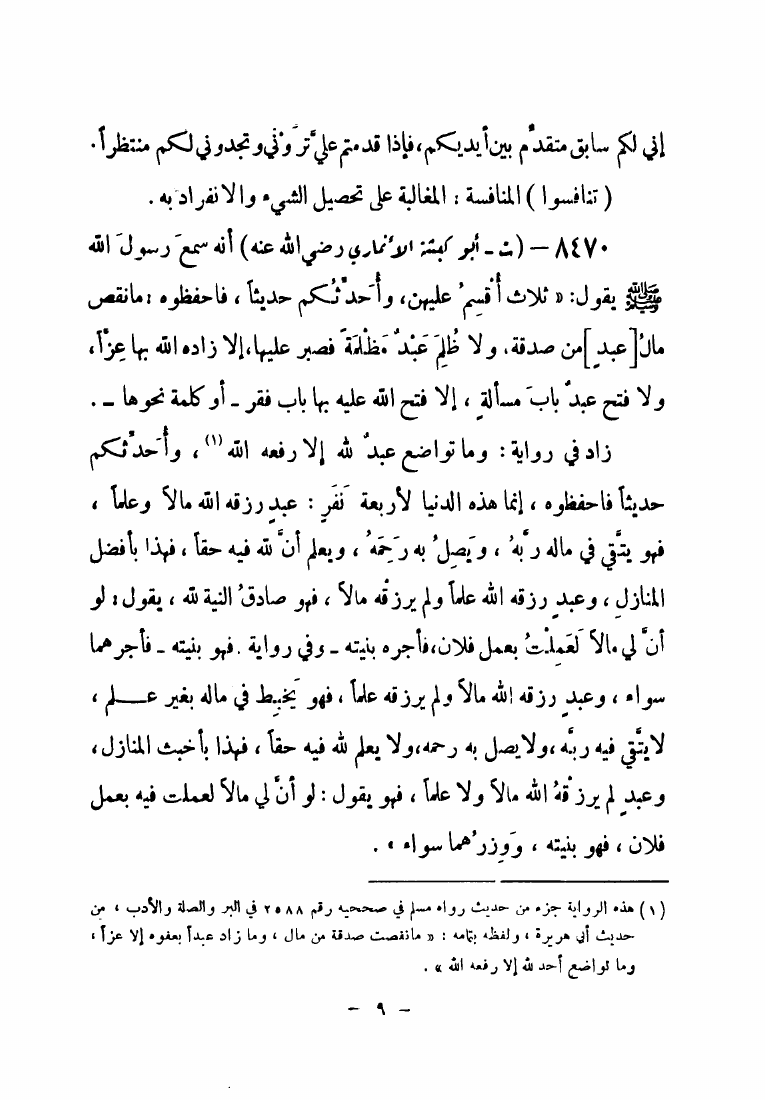 إني لكم سابق متقدِّم بين أيديكم، فإذا قدمتم عليَّ تَرَوْنَني وتجدوني لكم منتظراً.
( تنافسوا ) المنافسة : المغالبة على تحصيل الشيء والانفراد به .
٨٤٧٠ — (ت ـ أبو كبشة الأنماري رضي الله عنه) أنه سمعَ رسولَ الله
ﷺ يقول: « ثلاث أُقسِمُ عليهن، وأُحَدِّثُكم حديثاً ، فاحفظوه : مانقص
مالُ [عبدٍ] من صدقة. ولا ظُلِمَ عَبْدٌ مَظْلَمَةً فصبر عليها، إلا زاده الله بها عِزّاً،
ولا فتح عبدٌ بابَ مسألةٍ ، إلا فتح الله عليه بها باب فقر ـ أو كلمة نحوها ـ .
زاد في رواية : وما تواضع عبدٌ لله إلا رفعه الله (١) ، وأُحَدِّثُكم
حديثاً فاحفظوه ، إنما هذه الدنيا لأربعة نَفَرٍ : عبدٍ رزقه الله مالاً وعلماً ،
فهو يتَّقي في ماله ربَّهُ ، ويَصِلُ به رَحِمَهُ ، ويعلم أنَّ لله فيه حقاً ، فهذا بأفضل
المنازلِ ، وعبدٍ رزقه الله علماً ولم يرزقْه مالاً ، فهو صادقُ النية لله ، يقول : لو
أنَّ لي مالاً لَعَمِلْتُ بعمل فلان، فأجره بنيته ـ وفي رواية . فهو بنيته ـ فأجرهما
سواء ، وعبدٍ رزقه الله مالاً ولم يرزقه علماً ، فهو يَخْبِط في ماله بغير عــلم ،
لايتَّقي فيه ربَّه ،ولايصل به رحمه،ولا يعلم لله فيه حقاً ، فهذا بأخبث المنازل ،
وعبدٍ لم يرزقْهُ الله مالاً ولا علماً ، فهو يقول : لو أنَّ لي مالاً لعملت فيه بعمل
فلان ، فهو بنيته ، ووِزرُهما سواء » .
(١) هذه الرواية جزء من حديث رواه مسلم في صحيحه رقم ٢٥٨٨ في البر والصلة والأدب ، من
حديث أبي هريرة ، ولفظه بتمامه : « مانقصت صدقة من مال ، وما زاد عبداً بعفوه إلا عزاً ،
وما تواضع أحد لله إلا رفعه الله » .
– ٩ –